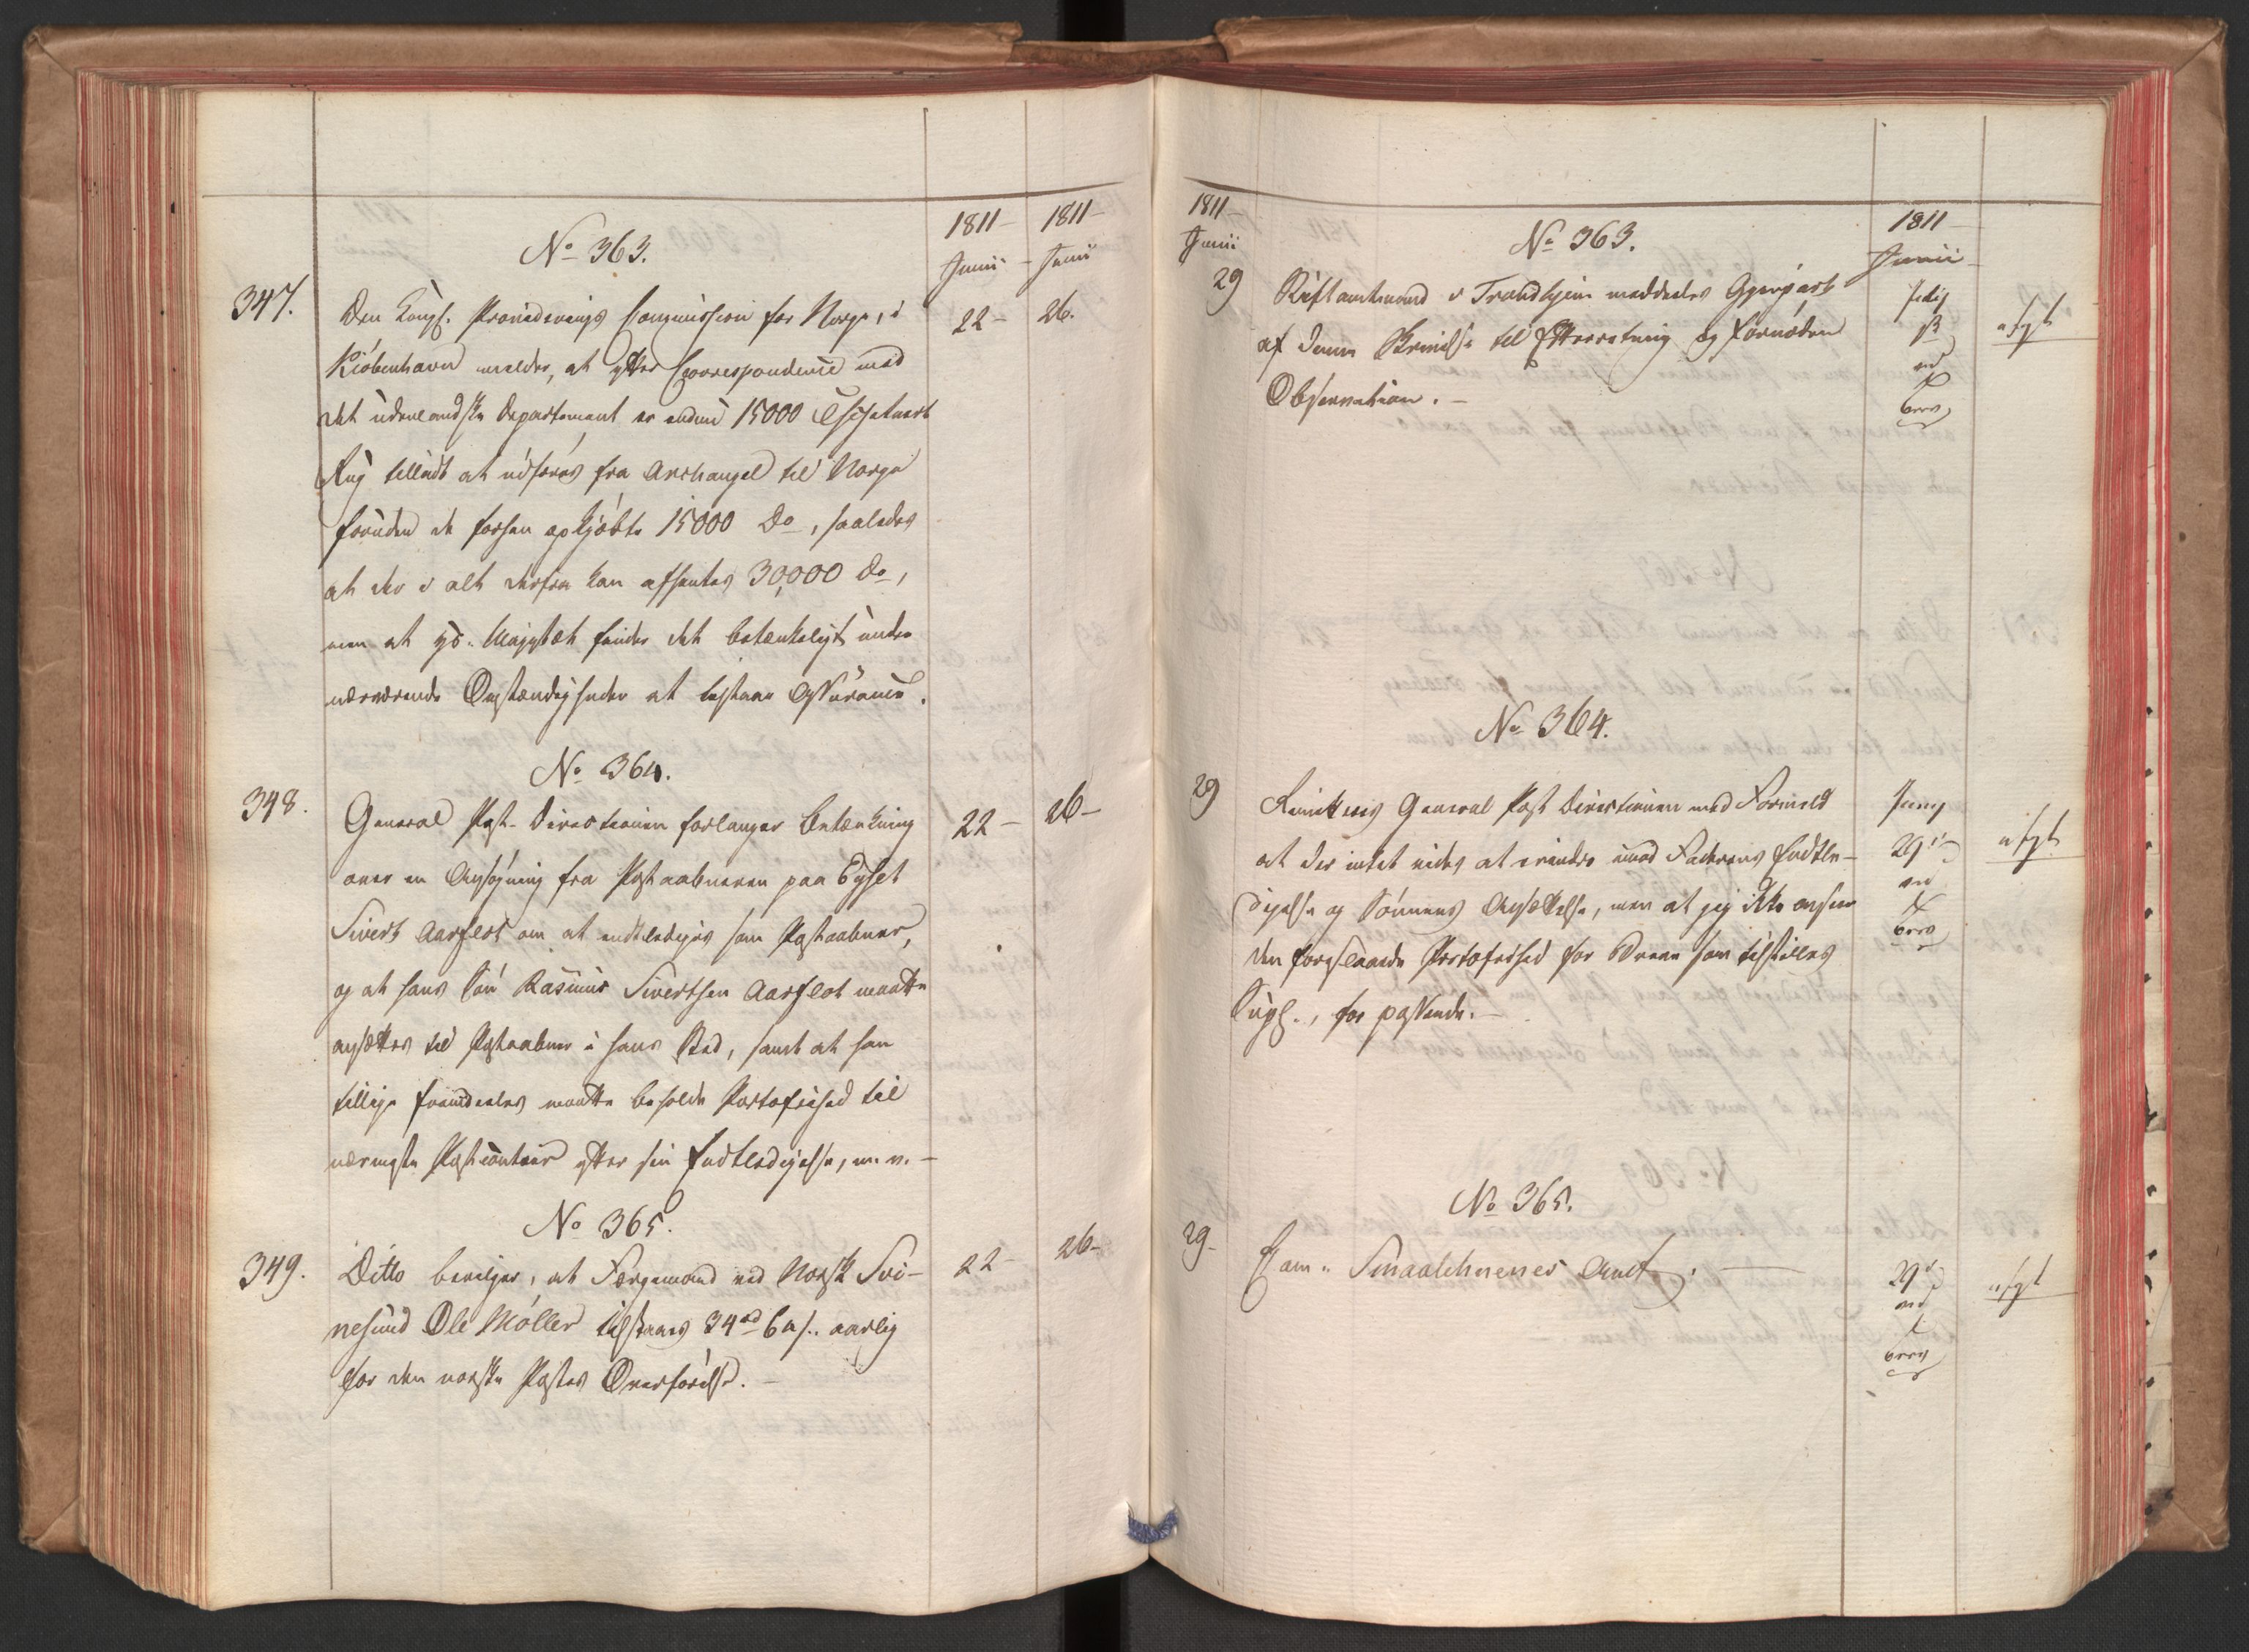 1811 1811
Junii Junii
No 363.
347. Den Kongl. Provideerings Commission for Norge, i 22 26.
Kiöbenhavn melder, at efter Correspondence med
det udenlandske Departement er endnu 15000 Tschetvert
Rug tilladt at udføres fra Archangel til Norge
foruden de forhen opkjöbte 15000 Do, saaledes
at der i alt derfra kan afhentes 30,000 Do,
men at Hs. Majestæt finder det betænkeligt under
nærværende Omstændigheder at bestaae Assurance.
No 364.
348. General Post-Directionen forlanger Betænkning 22 26
over en Ansøgning fra Postaabneren paa Eyset
Sivert Aarflot om at endtlediges som Postaabner,
og at hans Sön Rasmus Sivertsen Aarflot maatte
ansættes til Postaabner i hans Sted, samt at han
tillige fremdeles maatte beholde Portofrihed til
nærmeste Postcontoir efter sin Entledigelse, m.v.
No 365.
349. Ditto bevilger, at Færgemand ved Norsk Svi- 22 26
nesund Ole Möller tilstaaes 34 rd 6 s. aarlig
for den norske Postes Overförelse.
1811 1811
Junii Junii
No 363.
29 Stiftamtmand i Trondhjem meddeeles Gjenpart
af denne Skrivelse til Efterretning og fornöden
Observation.
afgt
No 364.
29 Remitteres General Post Directionen med Formeld
at der intet vides at erindre imod Faderens Endtle- 29
digelse og Sönnens Ansættelse, men at jeg ikke anseer
den foreslaaede Portofrihed for Breve som tilstilles
, for passende.
afgt
No 365.
29 Com. Smaalehnenes Amt. 29
afgt